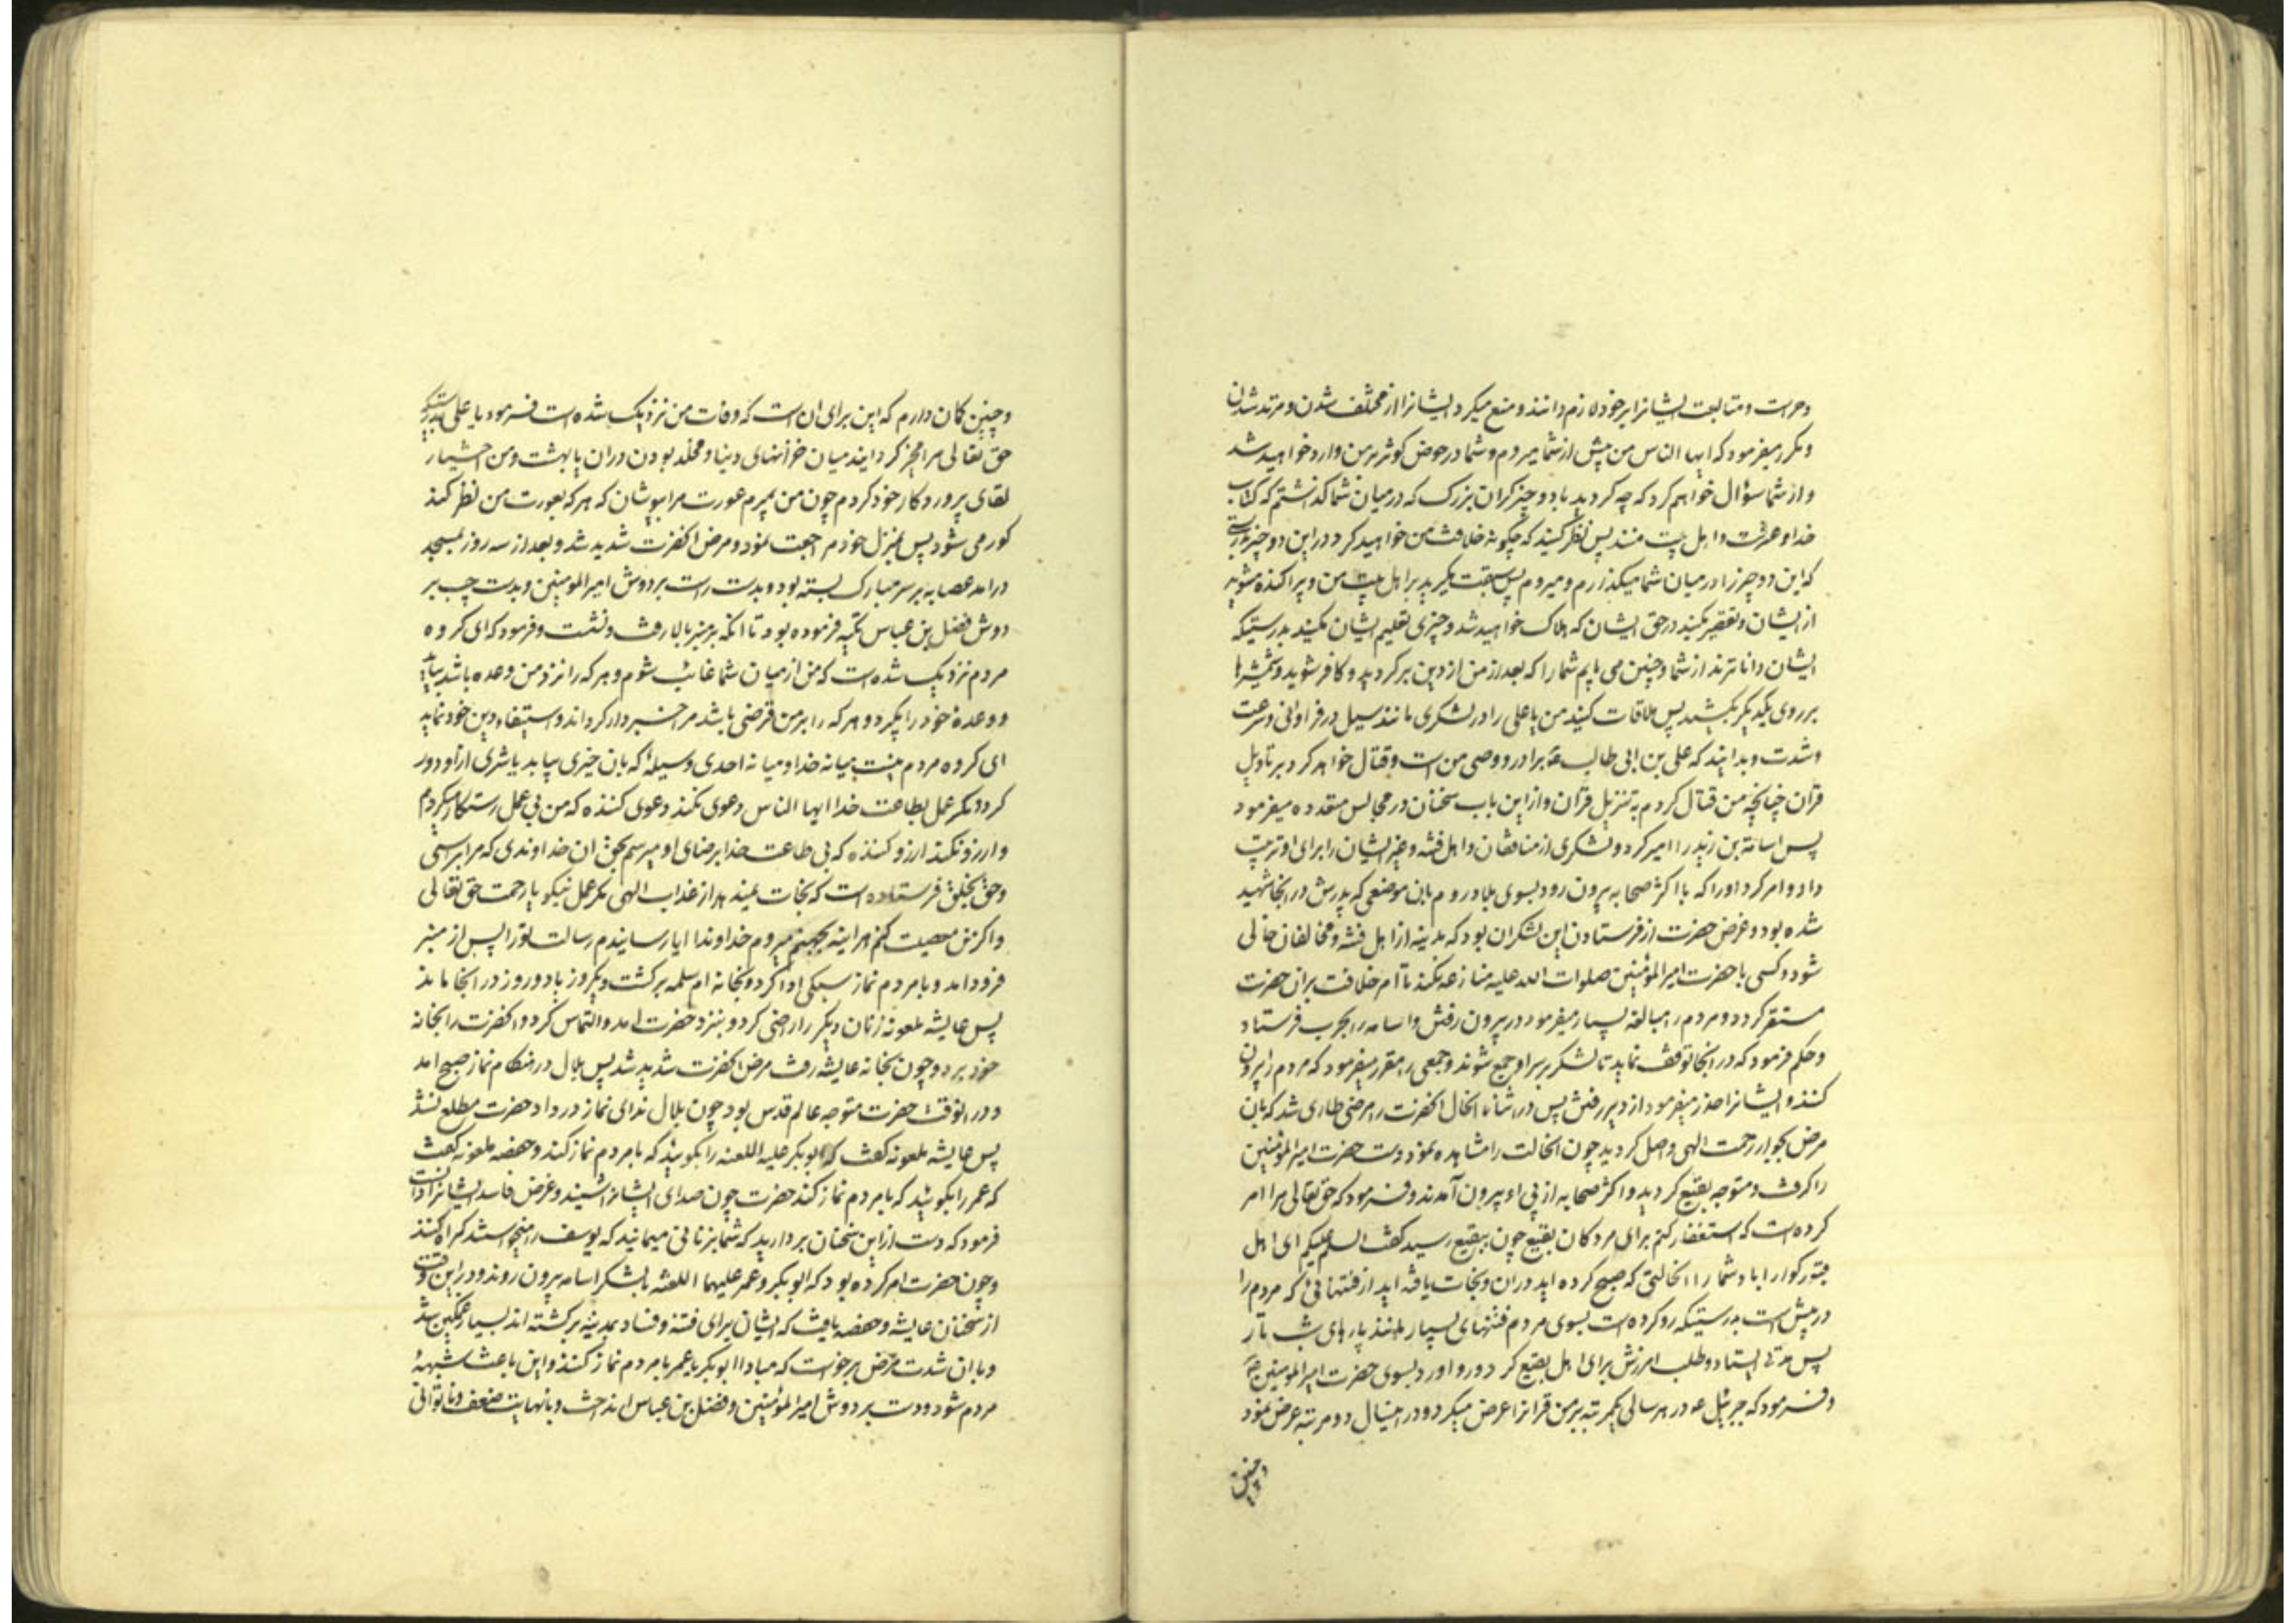 وحرمت ومتابعت ایشانرا برخود لازم دانند ومنع میکرد ایشانرا از مختلف شدن ومرتد شدن
ومکرر میفرمود که ایها الناس من پیش از شما میروم وشما در حوض کوثر برمن وارد خواهید شد
واز شما سؤال خواهم کرد که چه کردید با دو چیز کران بزرک که در میان شما کذاشتم که کتاب
خدا وعترت واهل بیت منند پس نظر کنید که چکونه خلافت من خواهید کرد در این دو چیز بدرستی
که این دو چیز را در میان شما میکذارم ومیروم پس سبقت مکیرید بر اهل بیت من وپراکنده مشوید
از ایشان وتقصیر مکنید در حق ایشان که هلاک خواهید شد وچیزی تعلیم ایشان مکنید بدرستیکه
ایشان داناترند از شما وچنین می یابم شما را که بعد از من از دین برکردید وکافر شوید وشمشیرها
بر روی یکدیکر بکشید پس ملاقات کنید من یا علی را در لشکری مانند سیل در فراوانی وسرعت
وشدت وبدانید که علی بن ابی طالب ع برادر ووصی من است وقتال خواهد کرد بر تاویل
قران چنانچه من قتال کردم بر تنزیل قران واز این باب سخنان در مجالس متعدده میفرمود
پس اسامة بن زید را امیر کرد ولشکری از منافقان واهل فتنه وغیر ایشان را برای او ترتیب
داد وامر کرد او را که با اکثر صحابه بیرون رود بسوی بلاد روم بان موضعی که پدرش در انجا شهید
شده بود وغرض حضرت از فرستادن این لشکران بود که مدینه از اهل فتنه ومخالفان خالی
شود وکسی با حضرت امیر المؤمنین صلوات الله علیه منازعه نکند تا امر خلافت بران حضرت
مستقر کردد ومردم را مبالغه بسیار میفرمود در بیرون رفتن واسامه را بجرف فرستاد
وحکم فرمود که در انجا توقف نماید تا لشکر بر سر او جمع شوند وجمعی را مقرر میفرمود که مردم را بیرون
کنند وایشانرا حذر میفرمود از دیر رفتن پس در اثناء انحال انحضرت را مرضی طاری شد که بان
مرض بجوار رحمت الهی واصل کردید چون انحالت را مشاهده نمود دست حضرت امیر المؤمنین
را کرفت ومتوجه بقیع کردید واکثر صحابه از پی او بیرون آمدند وفرمود که حق تعالی مرا امر
کرده است که استغفار کنم برای مردکان بقیع چون ببقیع رسید کفت السلام علیکم ای اهل
قبور کوارا باد شما را انحالتی که صبح کرده اید دران ونجات یافته اید از فتنهائی که مردم را
در پیش است بدرستیکه رو کرده است بسوی مردم فتنهای بسیار مانند پارهای شب تار
پس مدتی ایستاد وطلب امرزش برای اهل بقیع کرد ورو اورد بسوی حضرت امیر المؤمنین ع
وفرمود که جبرئیل ع در هر سالی یکمرتبه برمن قرانرا عرض میکرد ودر امسال دو مرتبه عرض نمود
وچنین
وچنین کان دارم که این برای ان است که وفات من نزدیک شده است فرمود یا علی بدرستیکه
حق تعالی مرا مخیر کردانید میان خزانهای دنیا ومخلد بودن دران یا بهشت ومن اختیار
لقای پروردکار خود کردم چون من بمیرم عورت مرا بپوشان که هر که بعورت من نظر کند
کور می شود پس بمنزل خود مراجعت نمود ومرض انحضرت شدید شد وبعد از سه روز بمسجد
درامد عصابه بر سر مبارک بسته بود وبدست راست بر دوش امیر المومنین وبدست چپ بر
دوش فضل بن عباس تکیه فرموده بود تا انکه بر منبر بالا رفت ونشست وفرمود که ای کروه
مردم نزدیک شده است که من از میان شما غائب شوم وهر که را نزد من وعده باشد بیاید
ووعده خود را بکیرد وهر که را برمن قرضی باشد مرا خبردار کرداند واستیفاء دین خود نماید
ای کروه مردم نیست میانه خدا ومیانه احدی وسیلهٔ که بان خیری بیابد یا شری از او دور
کردد مکر عمل بطاعت خدا ایها الناس دعوی نکند دعوی کننده که من بی عمل رستکار میکردم
وارزو نکند ارزو کننده که بی طاعت خدا برضای او میرسم بحق ان خداوندی که مرا براستی
وحق بخلق فرستاده است که نجات نمیدهد از عذاب الهی مکر عمل نیکو با رحمت حق تعالی
واکر من معصیت کنم هراینه بجهنم میروم خداوندا ایا رسانیدم رسالت تورا پس از منبر
فرود امد وبا مردم نماز سبکی ادا کرد وبخانه ام سلمه برکشت ویکروز یا دو روز در انجا ماند
پس عایشه ملعونه زنان دیکر را راضی کرد وبنزد حضرت امد والتماس کرد وانحضرت را بخانه
خود برد وچون بخانه عایشه رفت مرض انحضرت شدید شد پس بلال در هنکام نماز صبح امد
ودر انوقت حضرت متوجه عالم قدس بود چون بلال ندای نماز در داد حضرت مطلع نشد
پس عایشه ملعونه کفت که ابو بکر علیه اللعنه را بکوئید که با مردم نماز کند وحفصه ملعونه کفت
که عمر را بکوئید که با مردم نماز کند حضرت چون صدای ایشانرا شنید وغرض فاسد ایشانرا دانست
فرمود که دست از این سخنان بردارید که شما بزنانی میمانید که یوسف را میخواستند کمراه کنند
وچون حضرت امر کرده بود که ابو بکر وعمر علیهما اللعنه با لشکر اسامه بیرون روند ودر این وقت
از سخنان عایشه وحفصه یافت که ایشان برای فتنه وفساد بمدینه برکشته اند بسیار غمکین شد
وبا ان شدت مرض برخاست که مبادا ابو بکر یا عمر با مردم نماز کنند واین باعث شبههٔ
مردم شود ودست بر دوش امیر المؤمنین وفضل بن عباس انداخت وبا نهایت ضعف وناتوانی